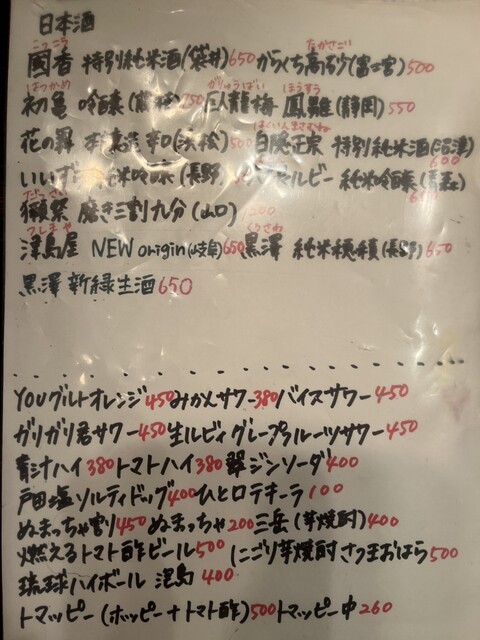 日本酒
こっこう たかさご
國香 特別純米酒(袋井)650 からくち高砂(富士宮)500
はつかめ がりゅうばい ほうすう
初亀 吟醸 臥龍梅 鳳雛(静岡)550
はくいんまさむね
花の舞 辛口(浜松)500 白隠正宗 特別純米(沼津)600
純米吟醸(長野) ルビー 純米吟醸
だっさい
獺祭 磨き三割九分(山口)
つしまや くろさわ
津島屋 NEW origin(岐阜)650 黒澤 純米穂積(長野)650
黒澤 新緑生酒650
YOUグルトオレンジ450 みかんサワー380 バイスサワー450
ガリガリ君サワー450 生ルビィグレープフルーツサワー450
青汁ハイ380 トマトハイ380 翠ジンソーダ400
戸田塩ソルティドッグ400 ひと口テキーラ100
ぬまっちゃ割り450 ぬまっちゃ200 三岳(芋焼酎)400
燃えるトマト酢ビール500 にごり芋焼酎 さつま おはら500
琉球ハイボール 400
トマッピー(ホッピー+トマト酢)500 トマッピー中260